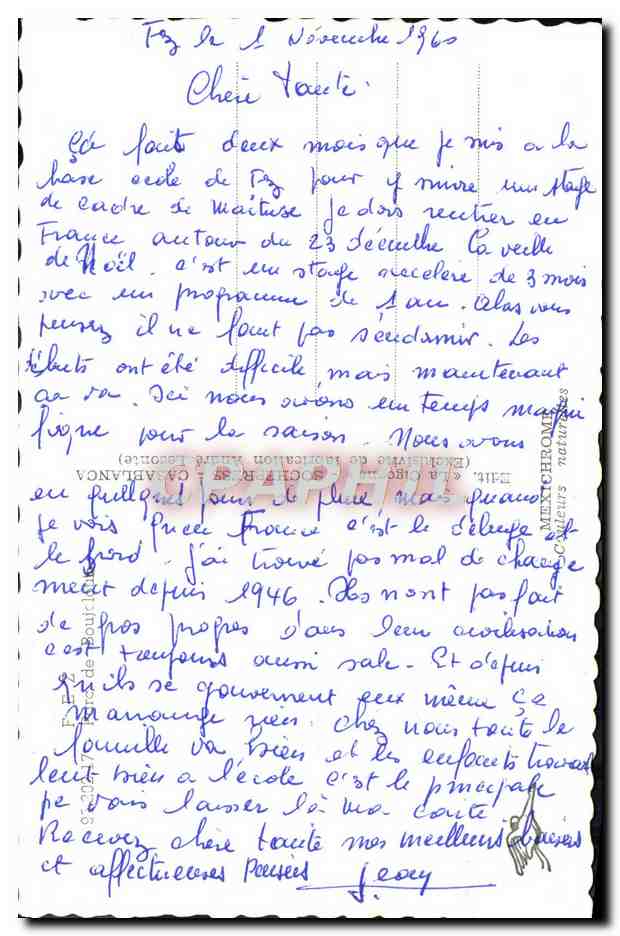 Fez le 1 Novembre 1960
Chère tante.
Ça fait deux mois que je suis a la
base école de Fez pour y suivre un stage
de cadre de maitrise je dois rentrer en
France autour du 23 décembre la veille
de Noël. c'est un stage accelere de 3 mois
avec un programme de 1 an. alors vous
pensez il ne faut pas s'endormir. Les
débuts ont été difficile mais maintenant
ça va. Ici nous avons un temps magni
fique pour la saison. Nous avons
eu quelques jours de pluie mais quand
je vois qu'en France c'est le déluge et
le froid. j'ai trouvé pas mal de change
ment depuis 1946. Ils n'ont pas fait
de gros progres dans leur civilisation
c'est toujours aussi sale. Et depuis
qu'ils se gouvernent eux même ça
n'arrange rien. chez nous toute la
famille va bien et les enfants travail
lent bien a l'école c'est le principale
je vais laisser là ma carte
Recevez chère tante mes meilleurs baisers
et affectueuses Pensées Jean
Edit. « La Cigogne » - SOCHEPRESS - CASABLANCA
(Exclusivité de fabrication André Leconte)
MEXICHROME
Couleurs naturelles
FEZ
99.202.17 - Parc de Boujeloud